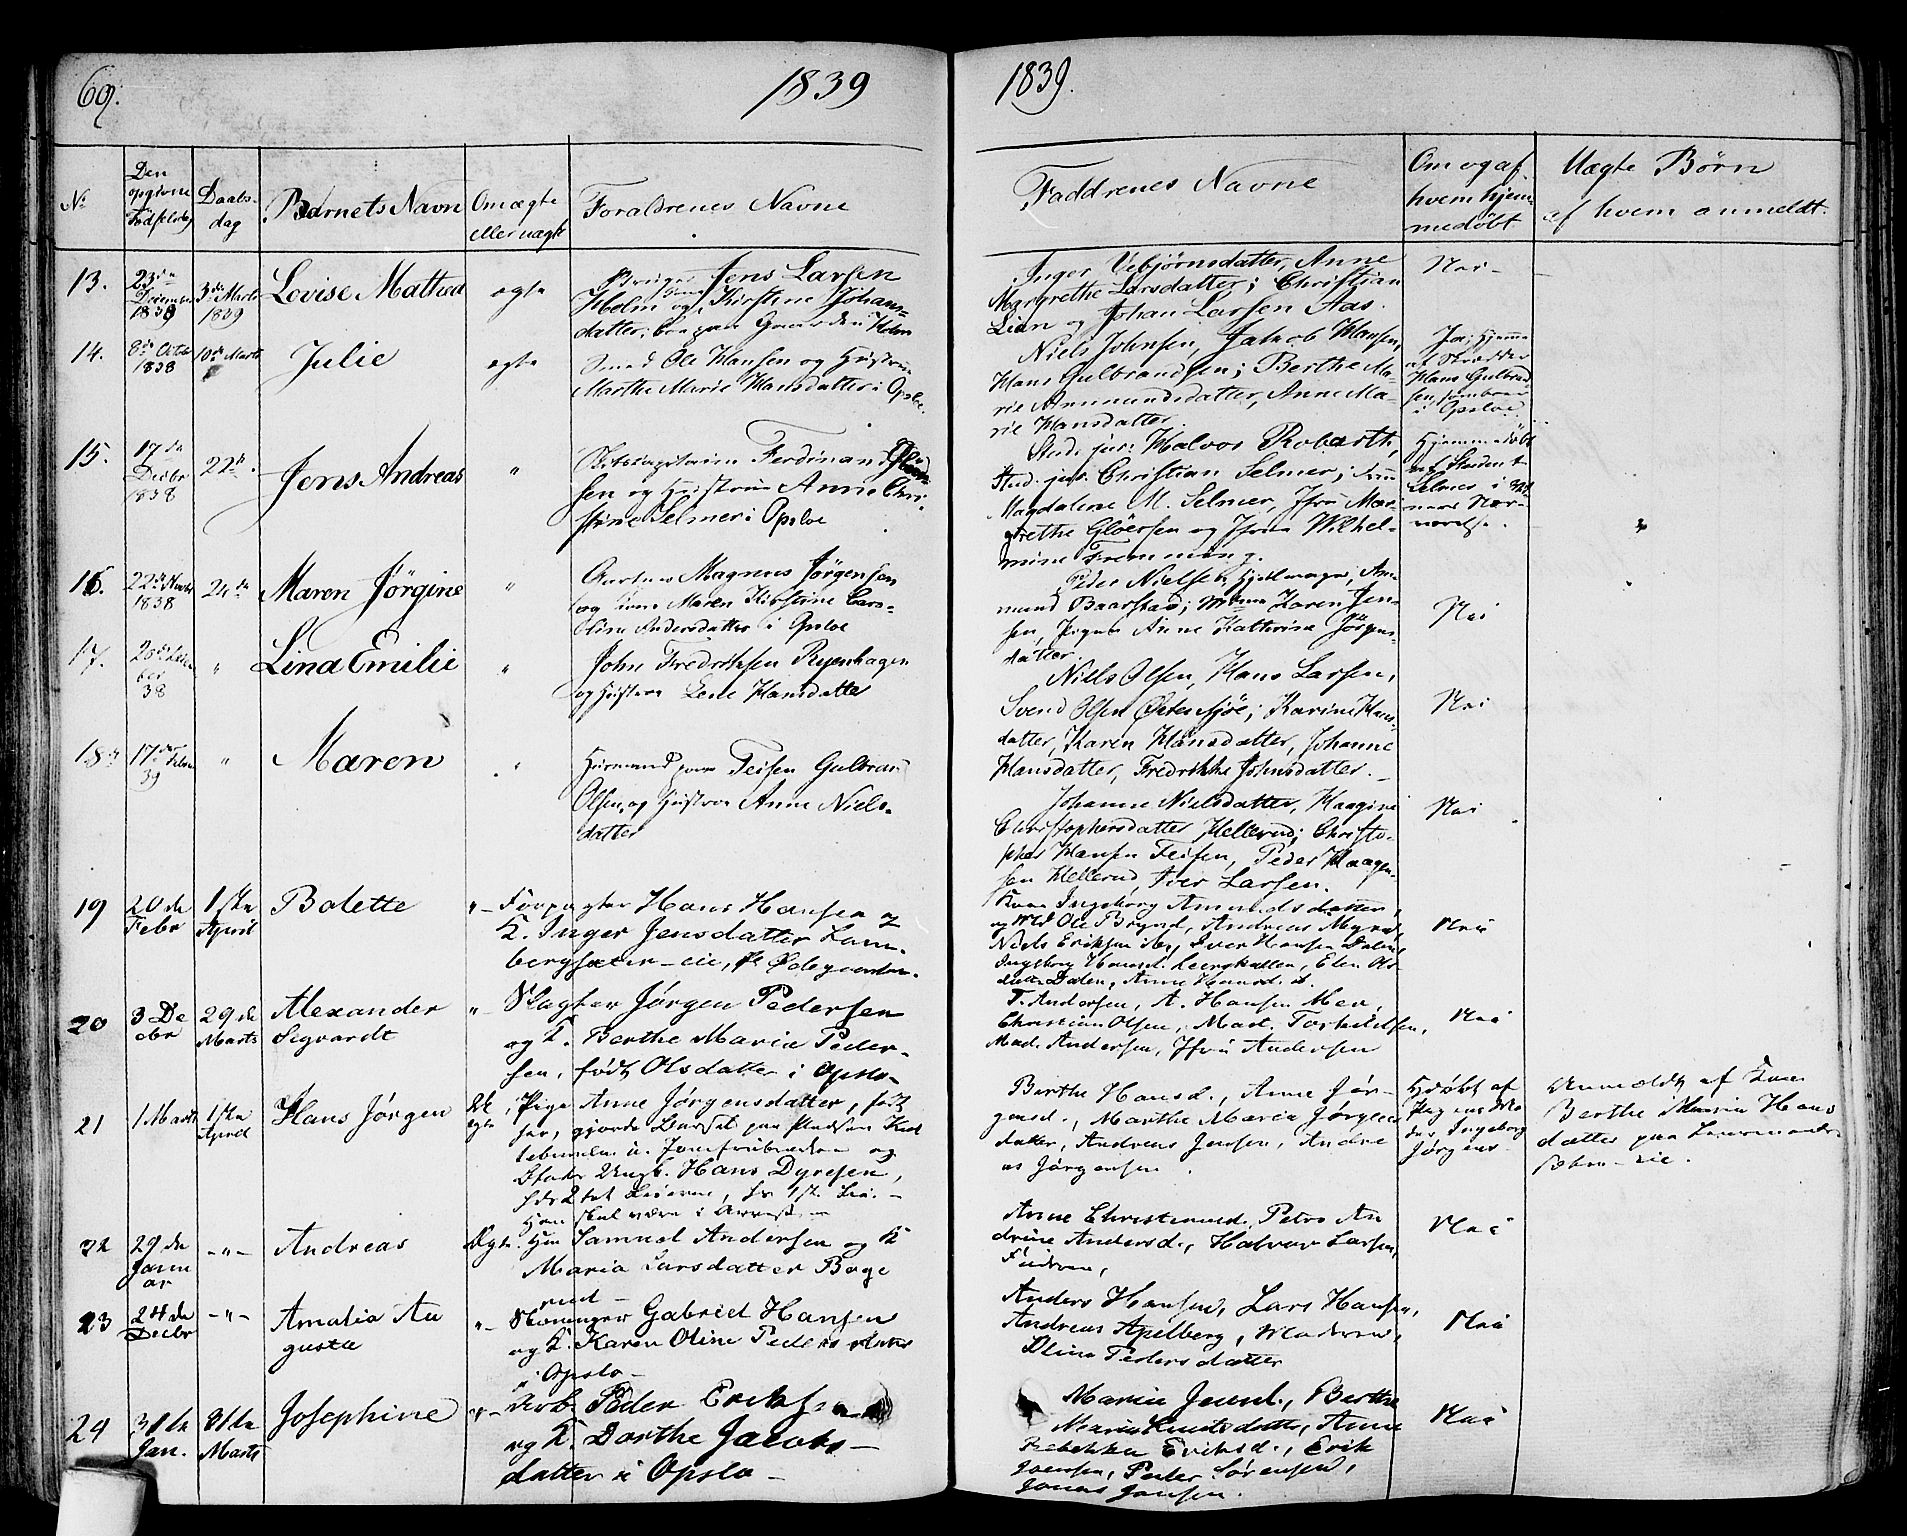 69. 1839
1839.
No
Den opgivne Fødselsdag
Daabsdag
Barnets Navn
Om ægte eller uægte
Forældrenes Navne
Faddrenes Navne
Om og af hvem hjemmedøbt
Uægte Børn af hvem anmeldt.
13. 23de December 1838 3die Marts 1839 Lovise Mathea ægte
Jens Larsen
Holm og Kirstine Johans-
datter
Inger Vebjørnsdatter, Anne
Margrethe Larsdatter; Christian
Lien og Johan Larsen Aas.
Nei
14. 8de Octob 1838 10de Marts Julie ægte
Smed Ole Hansen og Hustrue
Marthe Marie Hansdatter i Opsloe.
Niels Johnsen, Jakob Hansen,
Hans Gulbrandsen; Berthe Ma-
rie Ammundsdatter, Anne Ma-
rie Hansdatter.
Ja; Hjemme
af Skrædder
Hans Gulbrand-
sen
i Opsloe
15. 17de Decbr 1838 22de. Jens Andreas "
Ferdinand Gløer-
sen og Hustrue Anne Chri-
stine Selmer i Opsloe
Stud. jur: Halvor Robarth,
Stud. jur: Christian Selmer;
Magdalene M. Selmer, Jfru Mar-
grethe Gløersen og Jfru Wilhel-
mine Flemming.
Hjemmedøbt
af Student
Selmer i
Nær-
værelse.
16. 22de 1838 24de Maren Jørgine "
Magnus Jørgensen
og Kone Maren Kirstine Caro-
line Andersdatter i Opsloe
Peder Nielsen, Am-
mund Baarstad; Karen Jen-
sen, Pigen Anne Kathrine Jørgens-
datter.
Nei
17. 38 " Lina Emilie "
John Fredriksen Ryenhagen
og Hustrue Lene Hansdatter
Niels Olsen, Hans Larsen,
Svend Olsen Østensjøe; Karine Hans-
datter, Karen Hansdatter, Johanne
Hansdatter, Fredrikke Johnsdatter.
Nei
18. 17de Febr 39 " Maren "
Huusmand paa Teisen Gulbrand
Olsen og Hustrue Anne Niels-
datter
Johanne Nielsdatter, Haagine
Christophersdatter Hellerud; Christo-
pher Hansen Teisen, Peder Haagen-
sen Hellerud, Iver Larsen.
Nei
19 20de Febr 1ste April Bolette "
Forpagter Hans Hansen og
K. Inger Jensdatter
Kone Ingeborg Amundsdatter,
Ole Brynd, Andreas Myrer,
Niels Eriksen, Iver Hansen Dalen
Ingeborg Hansd. Leergkallen, Elen Ols-
datter Dalen, Anne Hansd.
Nei
20 3 Decbr 29de Marts Alexander Sigvardt "
Slagter Jørgen Pedersen
og K. Berthe Maria Peder-
sen, født Olsdatter i Opslo
T. Andersen, A. Hansen Moe,
Christian Olsen, Mad. Torkildsen,
Mad. Andersen, Jfru Andersen
Nei
21 1 Marts 1ste April Hans Jørgen Uægte
Pige Anne Jørgensdatter, født
her, gjorde Barsel paa Pladsen
Ungk. Hans Dyresen,
Berthe Hansd., Anne Jør-
gensd., Marthe Maria Jørgens-
datter, Andreas Jensen, Andre
as Jørgensen
Hjdøbt af
Pigens Mo
der, Ingeborg
Jørgens
Anmeldt af Kone
Berthe Maria Hans
datter paa
22 29de Januar " Andreas Ægte
Hm Samuel Andersen og K
Maria Larsdatter Bøge
rud
Anne Christensd., Petra An
drine Andersd., Halvor Larsen,
Faderen,
Nei
23 24de Decbr " Amalia Augusta "
Gabriel Hansen
og K. Karen Oline Pedersdatter
i Opslo
Anders Hansen, Lars Hansen,
Andreas Apelberg, Moderen,
Oline Pedersdatter
Nei
24 31te Jan. 31te Marts Josephine "
Arb. Peder Eriksen
og K. Dorthe Jacobs-
datter i Opslo
Maria Jensd., Berthe
Maria Knudsdatter, Anne
Rebekka Eriksd., Erik
Jensen, Peder Sørensen,
Jonas Jansen.
Nei